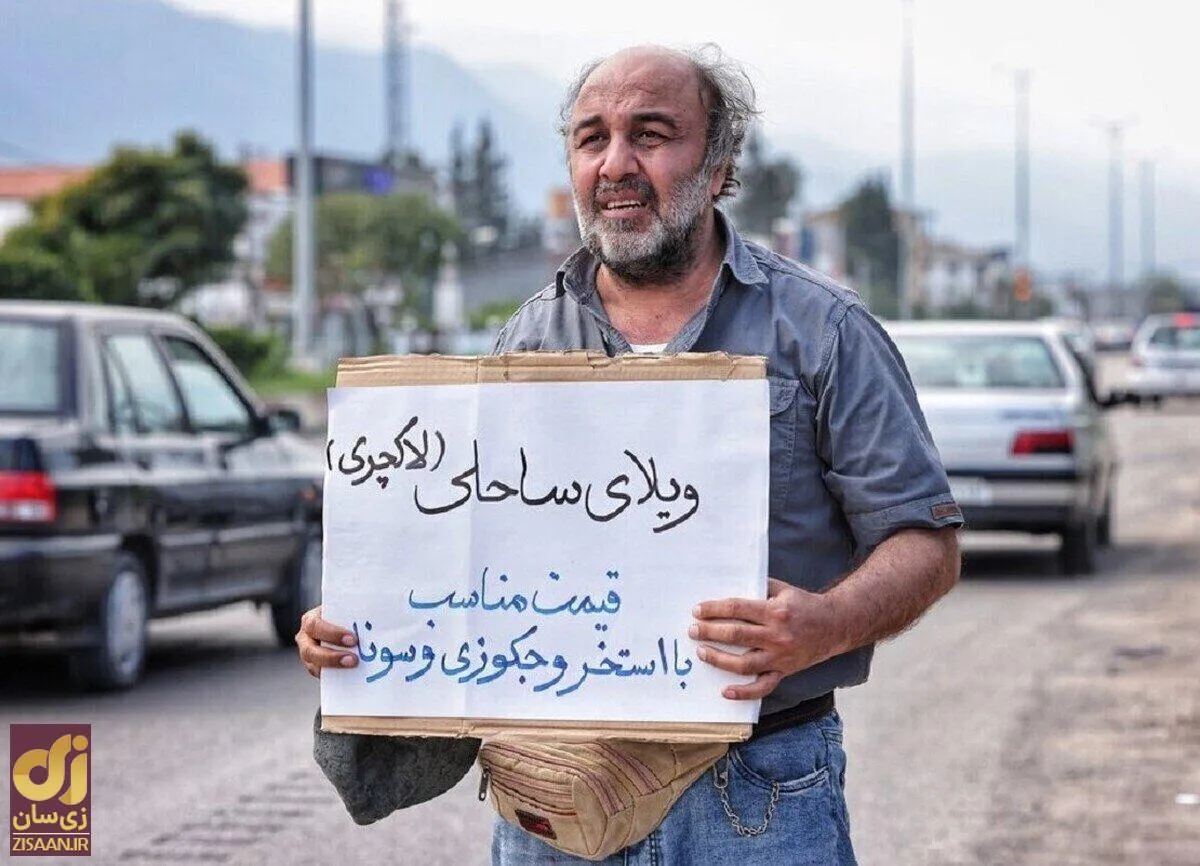 ویلای ساحلی (لاکچری)
قیمت مناسب
با استخر و جکوزی و سونا
زی‌سان
ZISAAN.IR